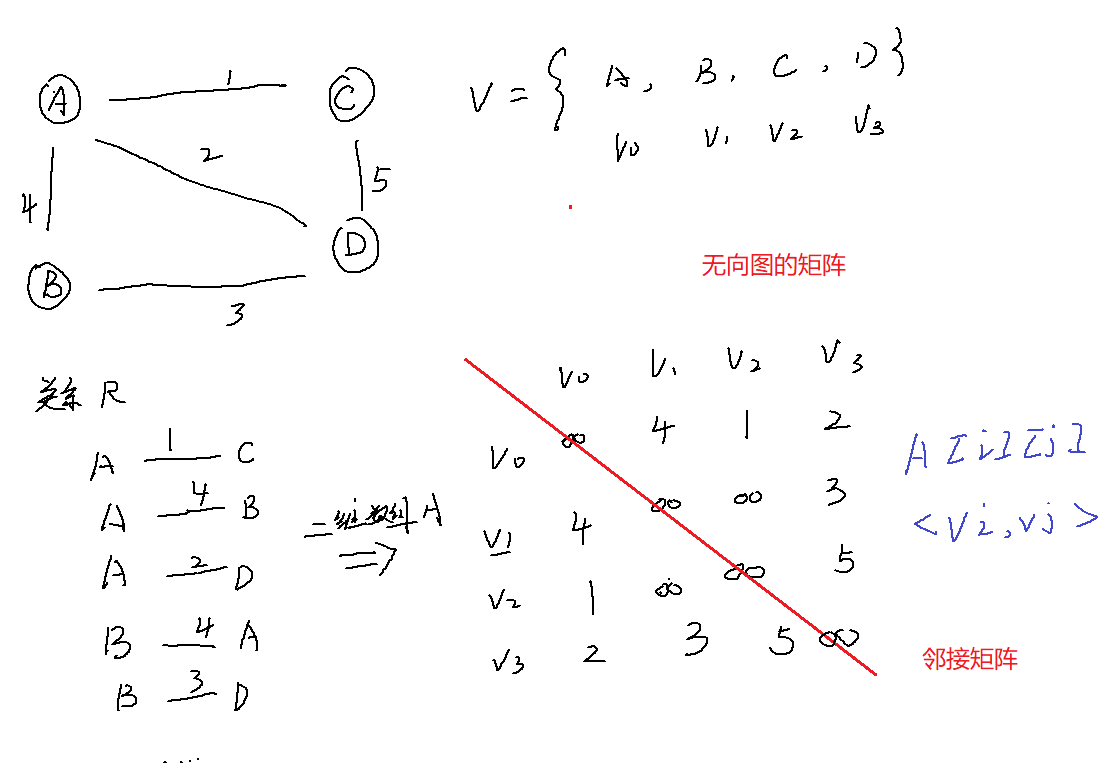 A 1 C
V = { A, B, C, D }
V0 V1 V2 V3
4 2 5
B 3 D
无向图的矩阵
关系 R
A 1 C
A 4 B
A 2 D
B 4 A
B 3 D
二维数组 A
=>
V0 V1 V2 V3
V0 ∞ 4 1 2
V1 4 ∞ ∞ 3
V2 1 ∞ ∞ 5
V3 2 3 5 ∞
A[i][j]
<Vi,Vj>
邻接矩阵